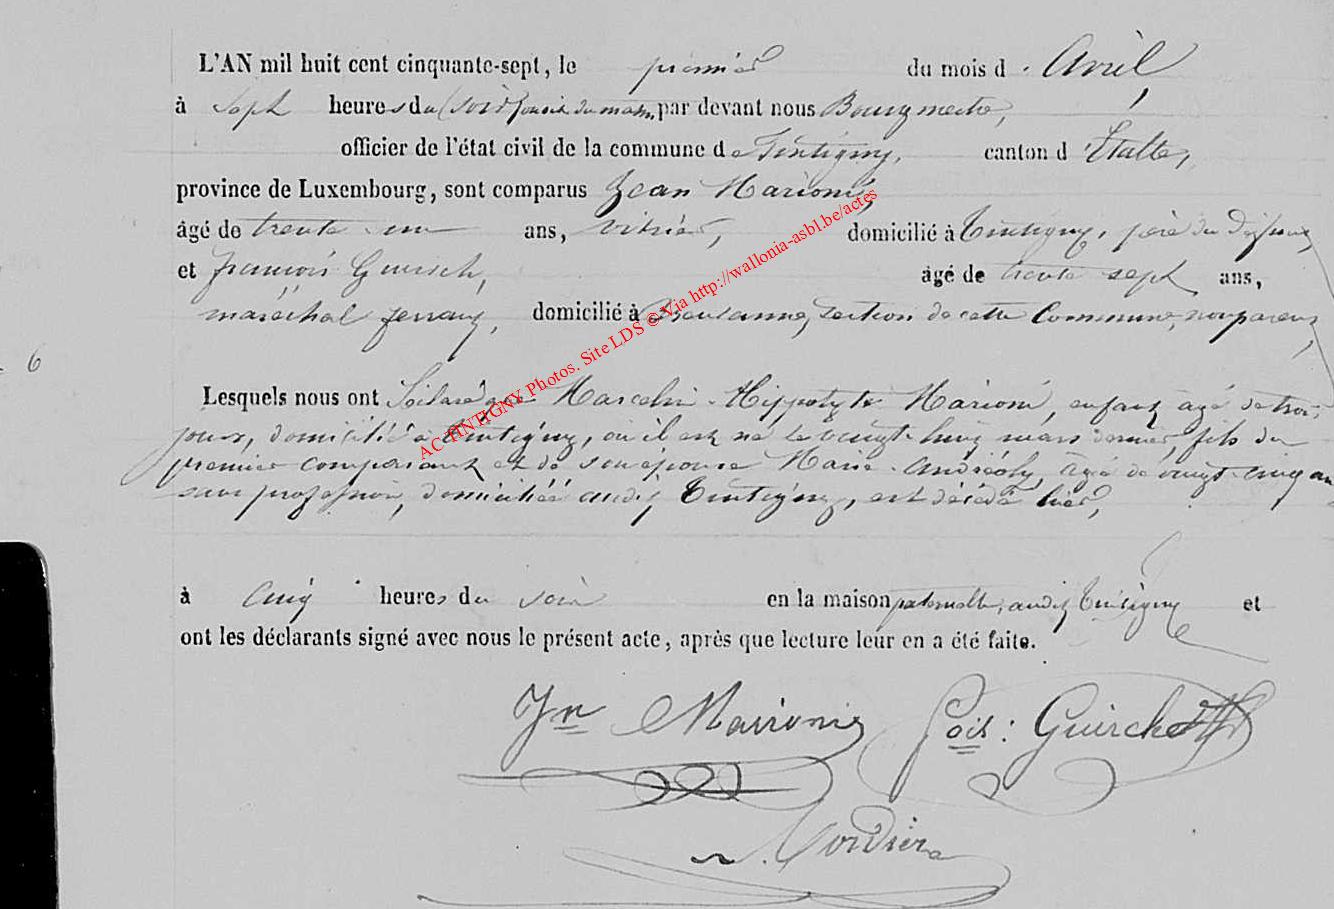 L'AN mil huit cent cinquante-sept, le premier du mois d'Avril,
à Sept heures du soir par devant nous Bourgmestre,
officier de l'état civil de la commune de Tintigny, canton d'Etalle,
province de Luxembourg, sont comparus Jean Marioni,
âgé de trente-un ans, vitrier, domicilié à Tintigny, père du défunt,
et François Guirsch, âgé de trente sept ans,
maréchal ferrant, domicilié à section de cette Commune, non parent,
6
Lesquels nous ont déclaré que Marcelin-Hippolyte Marioni, enfant âgé de trois
jours, domicilié à Tintigny, où il est né le vingt-huit mars dernier, fils du
premier comparant et de son épouse Marie âgée de vingt-cinq ans
sans profession, domiciliée audit Tintigny, est décédé hier,
à Cinq heures du soir en la maison paternelle, audit Tintigny et
ont les déclarants signé avec nous le présent acte, après que lecture leur en a été faite.
Jn Marionis Fcois: Guirch
Cordier
AC TINTIGNY Photos. Site LDS © Via http://wallonia-asbl.be/actes